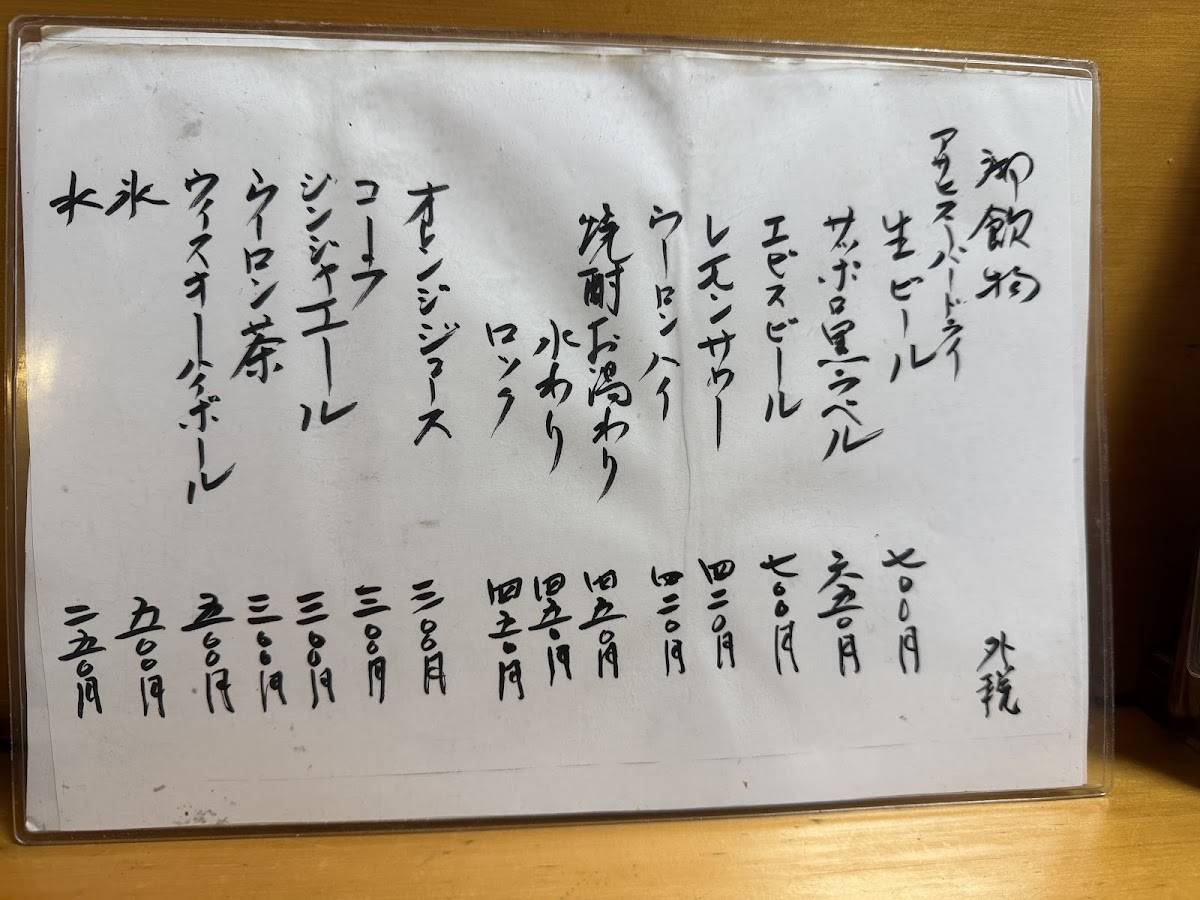 御飲物 外税
アサヒスーパードライ
生ビール 七〇〇円
サッポロ黒ラベル 六五〇円
エビスビール 七〇〇円
レモンサワー 四二〇円
ウーロンハイ 四二〇円
焼酎お湯わり 四五〇円
水わり 四五〇円
ロック 四五〇円
オレンジジュース 三〇〇円
コーラ 三〇〇円
ジンジャエール 三〇〇円
ウイロン茶 三〇〇円
ウィスキーハイボール 五〇〇円
氷 五〇〇円
水 二五〇円